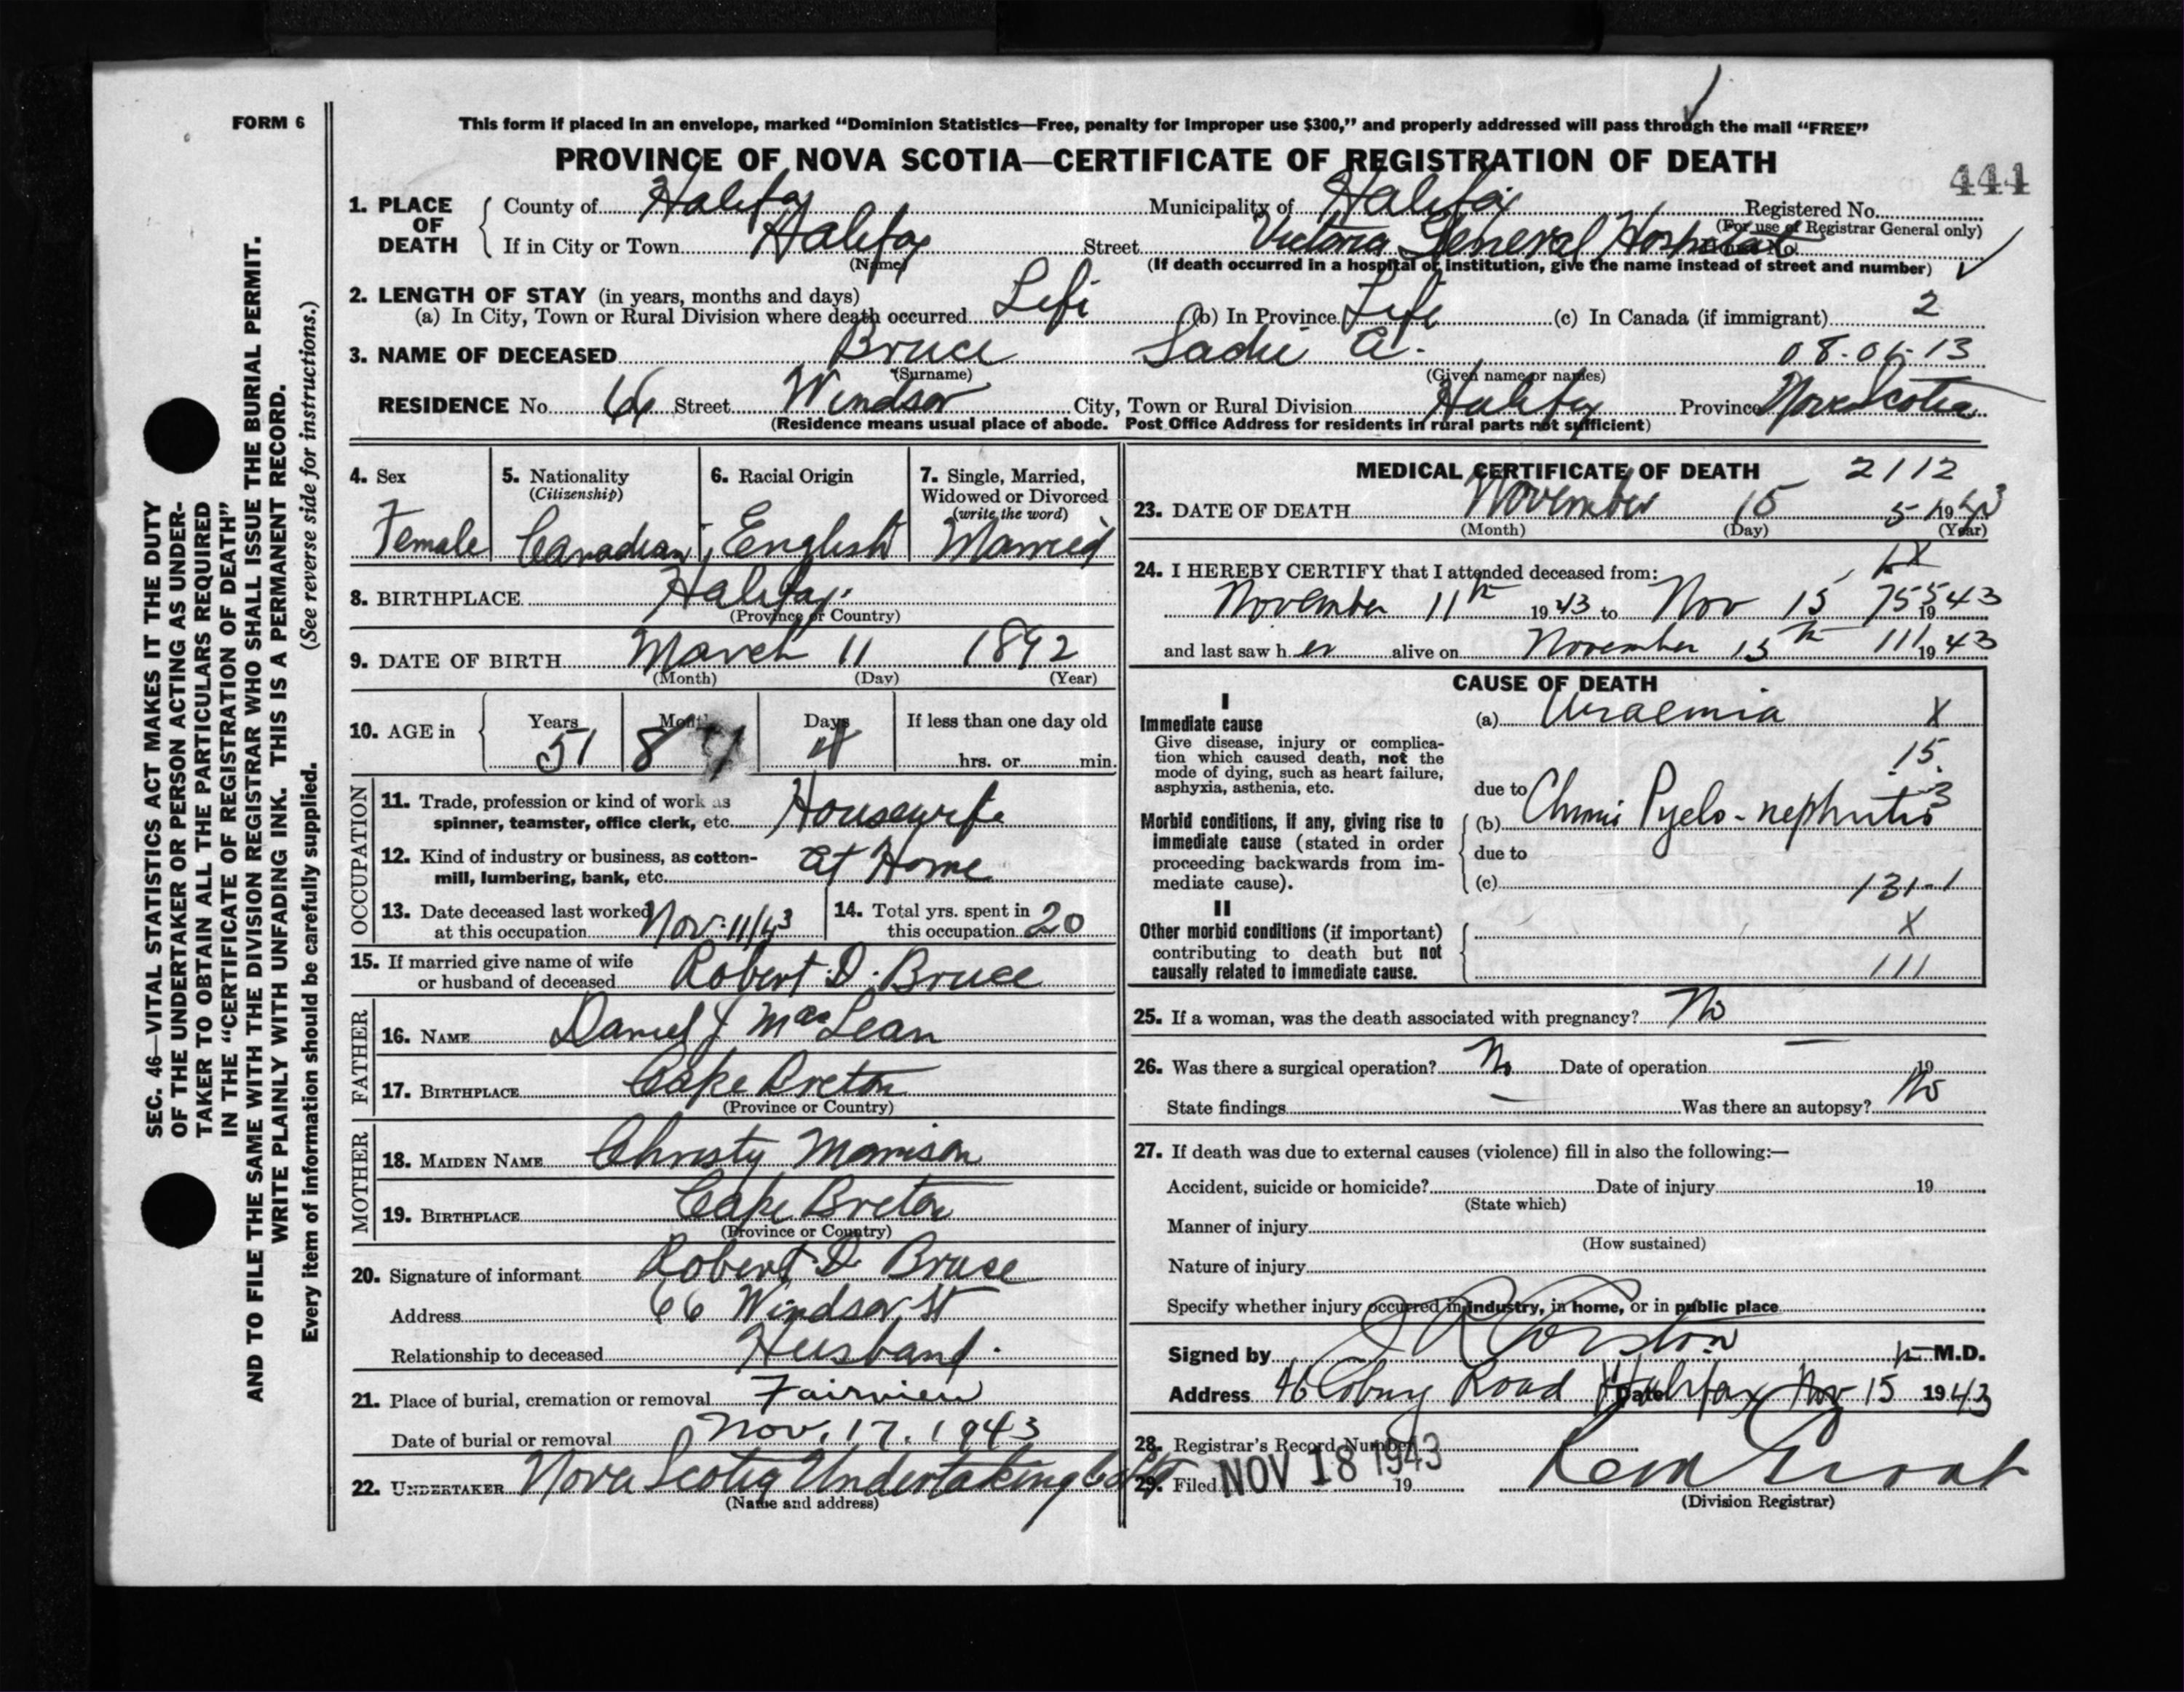 FORM 6
This form if placed in an envelope, marked “Dominion Statistics—Free, penalty for improper use $300,” and properly addressed will pass through the mail “FREE”
PROVINCE OF NOVA SCOTIA—CERTIFICATE OF REGISTRATION OF DEATH
444
1. PLACE OF DEATH County of Halifax Municipality of Halifax Registered No.
(For use of Registrar General only)
If in City or Town Halifax Street Victoria General Hospital House No.
(Name) (If death occurred in a hospital or institution, give the name instead of street and number)
2. LENGTH OF STAY (in years, months and days)
(a) In City, Town or Rural Division where death occurred Life (b) In Province Life (c) In Canada (if immigrant) 2
3. NAME OF DECEASED Bruce Sadie A. 08-06-13
(Surname) (Given name or names)
RESIDENCE No. 66 Street Windsor City, Town or Rural Division Halifax Province Nova Scotia
(Residence means usual place of abode. Post Office Address for residents in rural parts not sufficient)
4. Sex 5. Nationality (Citizenship) 6. Racial Origin 7. Single, Married, Widowed or Divorced (write the word)
Female Canadian English Married
8. BIRTHPLACE Halifax
(Province or Country)
9. DATE OF BIRTH March 11 1892
(Month) (Day) (Year)
10. AGE in Years Months Days If less than one day old
51 8 4 hrs. or min.
OCCUPATION
11. Trade, profession or kind of work as
spinner, teamster, office clerk, etc. Housewife
12. Kind of industry or business, as cotton-
mill, lumbering, bank, etc. At Home
13. Date deceased last worked at this occupation Nov. 11/43 14. Total yrs. spent in this occupation 20
15. If married give name of wife
or husband of deceased Robert D. Bruce
FATHER
16. NAME Daniel J MacLean
17. BIRTHPLACE Cape Breton
(Province or Country)
MOTHER
18. MAIDEN NAME Christy Morrison
19. BIRTHPLACE Cape Breton
(Province or Country)
20. Signature of informant Robert D. Bruce
Address 66 Windsor St
Relationship to deceased Husband.
21. Place of burial, cremation or removal Fairview
Date of burial or removal Nov. 17. 1943
22. UNDERTAKER Nova Scotia Undertaking Co
(Name and address)
MEDICAL CERTIFICATE OF DEATH 2112
23. DATE OF DEATH November 15 51 1943
(Month) (Day) (Year)
24. I HEREBY CERTIFY that I attended deceased from:
November 11th 1943 to Nov 15 755 1943
and last saw her alive on November 15th 111 1943
CAUSE OF DEATH
I
Immediate cause (a) Uraemia X
Give disease, injury or complica-
tion which caused death, not the
mode of dying, such as heart failure,
asphyxia, asthenia, etc.
15
due to
Morbid conditions, if any, giving rise to
immediate cause (stated in order
proceeding backwards from im-
mediate cause).
(b) Chronic Pyelo-nephritis 3
due to
(c) 131-1
II
Other morbid conditions (if important)
contributing to death but not
causally related to immediate cause.
X
111
25. If a woman, was the death associated with pregnancy? No
26. Was there a surgical operation? No Date of operation — 19
State findings — Was there an autopsy? No
27. If death was due to external causes (violence) fill in also the following:—
Accident, suicide or homicide? Date of injury 19
(State which)
Manner of injury
(How sustained)
Nature of injury
Specify whether injury occurred in industry, in home, or in public place
Signed by J R Corston M.D.
Address 46 Coburg Road Halifax Date Nov 15 1943
28. Registrar's Record Number
29. Filed NOV 18 1943 19
(Division Registrar)
SEC. 46—VITAL STATISTICS ACT MAKES IT THE DUTY
OF THE UNDERTAKER OR PERSON ACTING AS UNDER-
TAKER TO OBTAIN ALL THE PARTICULARS REQUIRED
IN THE “CERTIFICATE OF REGISTRATION OF DEATH”
AND TO FILE THE SAME WITH THE DIVISION REGISTRAR WHO SHALL ISSUE THE BURIAL PERMIT.
WRITE PLAINLY WITH UNFADING INK. THIS IS A PERMANENT RECORD.
Every item of information should be carefully supplied. (See reverse side for instructions.)